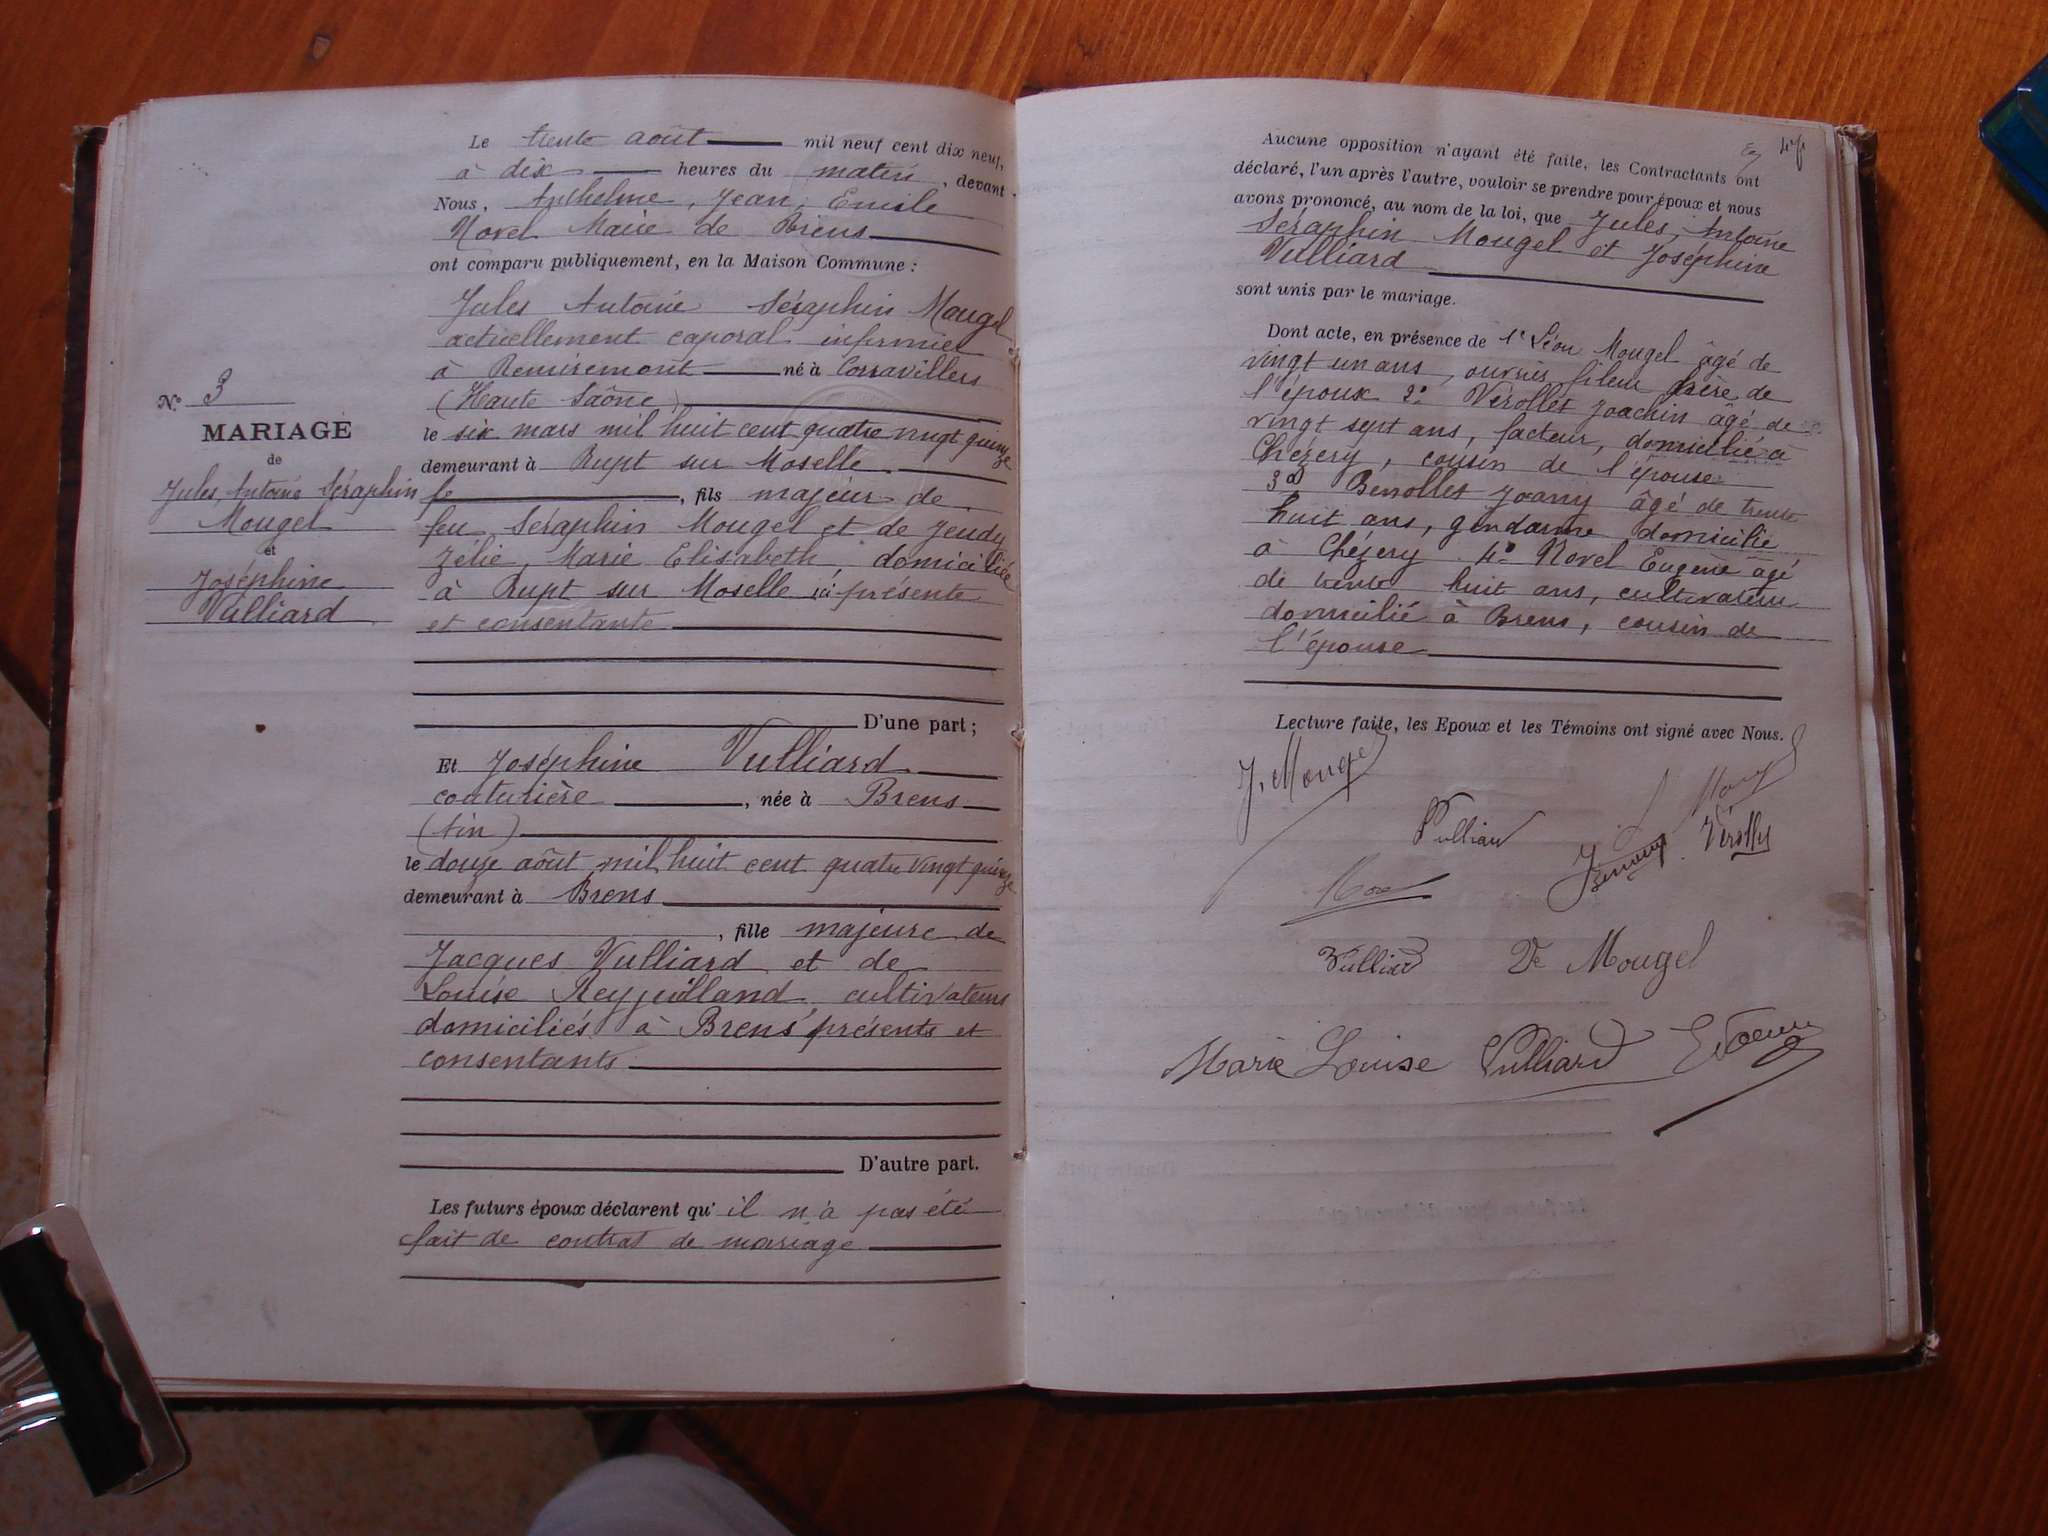 N.º 3
MARIAGE
de
Jules, Antoine Séraphin
Mougel
et
Joséphine
Vulliard
Le trente août mil neuf cent dix neuf,
à dix heures du matin, devant
Nous, Anthelme, Jean, Emile
Novel Maire de Brens
ont comparu publiquement, en la Maison Commune :
Jules Antoine Séraphin Mougel
actuellement caporal infirmier
à Remiremont né à Corravillers
(Haute Saône)
le six mars mil huit cent quatre vingt quinze
demeurant à Rupt sur Moselle
, fils majeur de
feu Séraphin Mougel et de Jeudy
Zélie, Marie Elisabeth, domiciliée
à Rupt sur Moselle ici présente
et consentante
D'une part ;
Et Joséphine Vulliard
couturière, née à Brens
(Ain)
le douze août mil huit cent quatre vingt quinze
demeurant à Brens
, fille majeure de
Jacques Vulliard et de
Louise cultivateurs
domiciliés à Brens présents et
consentants
D'autre part.
Les futurs époux déclarent qu'il n'a pas été
fait de contrat de mariage
Aucune opposition n'ayant été faite, les Contractants ont
déclaré, l'un après l'autre, vouloir se prendre pour époux et nous
avons prononcé, au nom de la loi, que Jules, Antoine
Séraphin Mougel et Joséphine
Vulliard
sont unis par le mariage.
Dont acte, en présence de 1º Léon Mougel âgé de
vingt un ans, ouvrier fileur frère de
l'époux 2º Vérollet Joachin âgé de
vingt sept ans, facteur, domicilié à
Chézery, cousin de l'épouse
3º Joany âgé de trente
huit ans, gendarme domicilié
à Chézery 4º Novel Eugène âgé
de trente huit ans, cultivateur
domicilié à Brens, cousin de
l'épouse
Lecture faite, les Epoux et les Témoins ont signé avec Nous.
J. Mougel
Mougel
Vulliard
Vérollet
Vulliard Ve Mougel
Marie Louise Vulliard